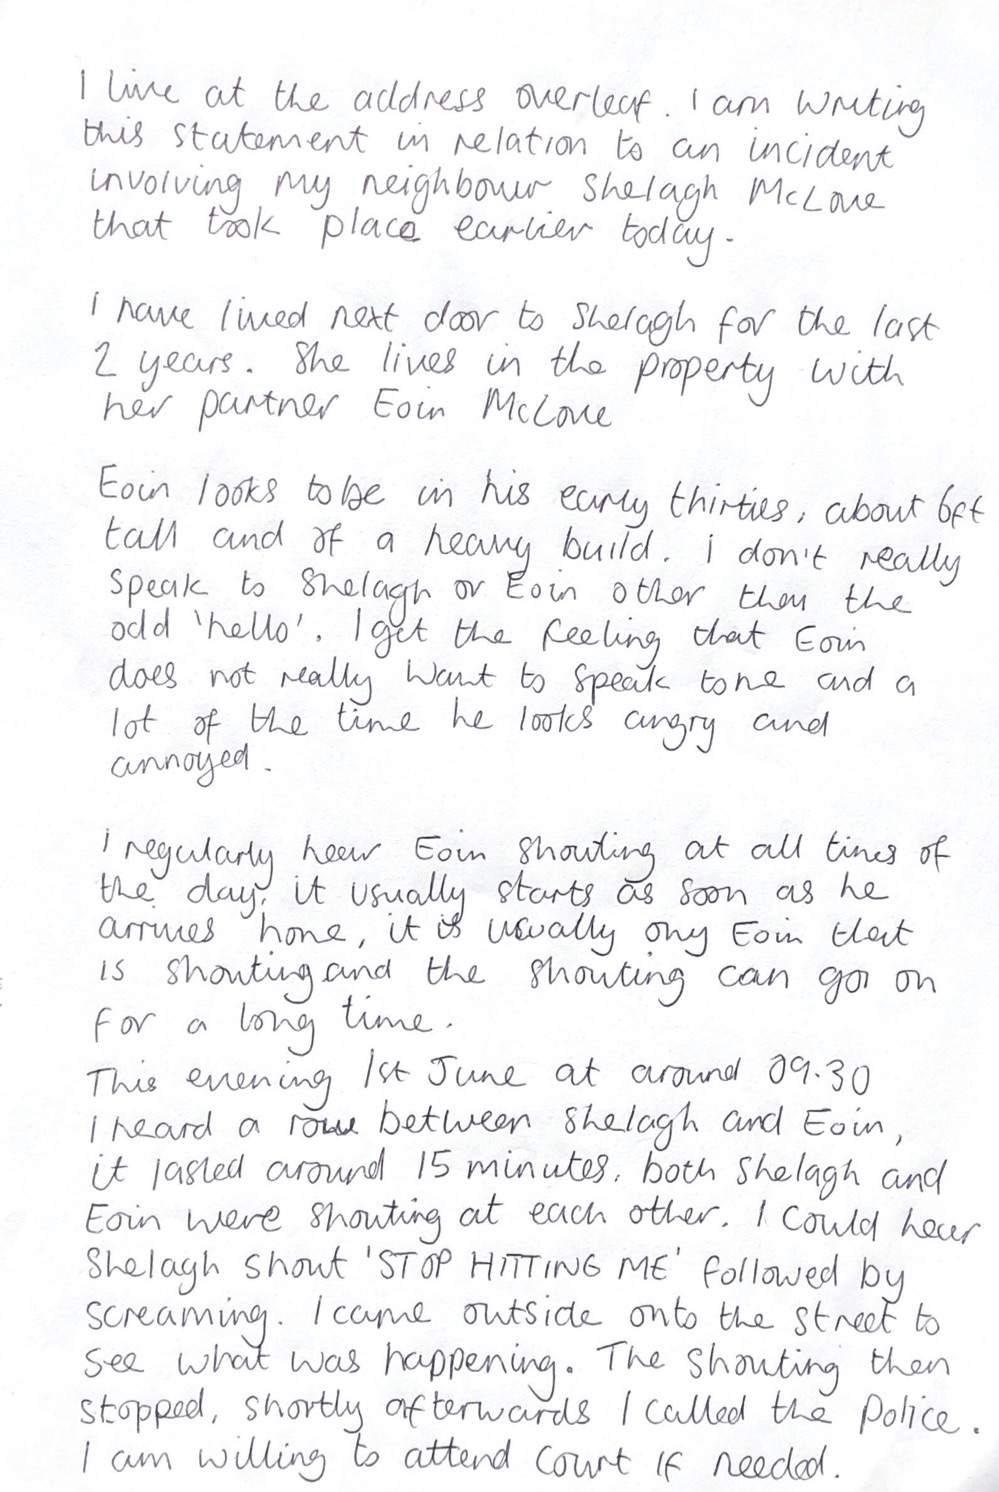 I live at the address overleaf. I am writing
this statement in relation to an incident
involving my neighbour Shelagh McLove
that took place earlier today.
I have lived next door to Shelagh for the last
2 years. She lives in the property with
her partner Eoin McLove
Eoin looks to be in his early thirties, about 6ft
tall and of a heavy build. I don't really
speak to Shelagh or Eoin other than the
odd 'hello'. I get the feeling that Eoin
does not really want to speak to me and a
lot of the time he looks angry and
annoyed.
I regularly hear Eoin shouting at all times of
the day, it usually starts as soon as he
arrives home, it is usually ony Eoin that
is shouting and the shouting can go on
for a long time.
This evening 1st June at around 09.30
I heard a row between Shelagh and Eoin,
it lasted around 15 minutes. both Shelagh and
Eoin were shouting at each other. I could hear
Shelagh shout 'STOP HITTING ME' followed by
screaming. I came outside onto the street to
see what was happening. The shouting then
stopped, shortly afterwards I called the Police.
I am willing to attend court if needed.